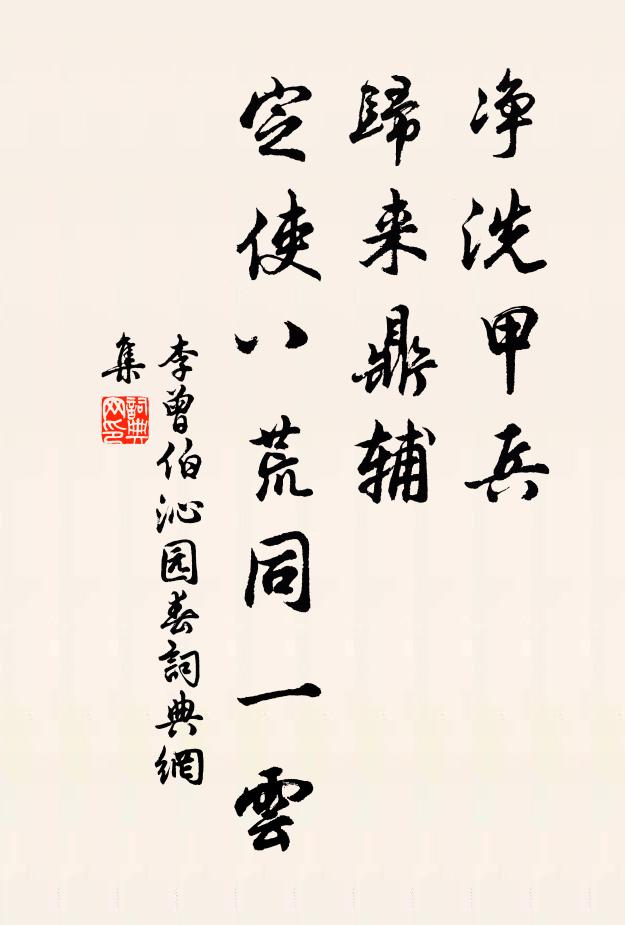 净洗甲兵
歸来鼎辅
定使八荒同一雲
李曾伯沁园春詞典網
集
詞典
网印